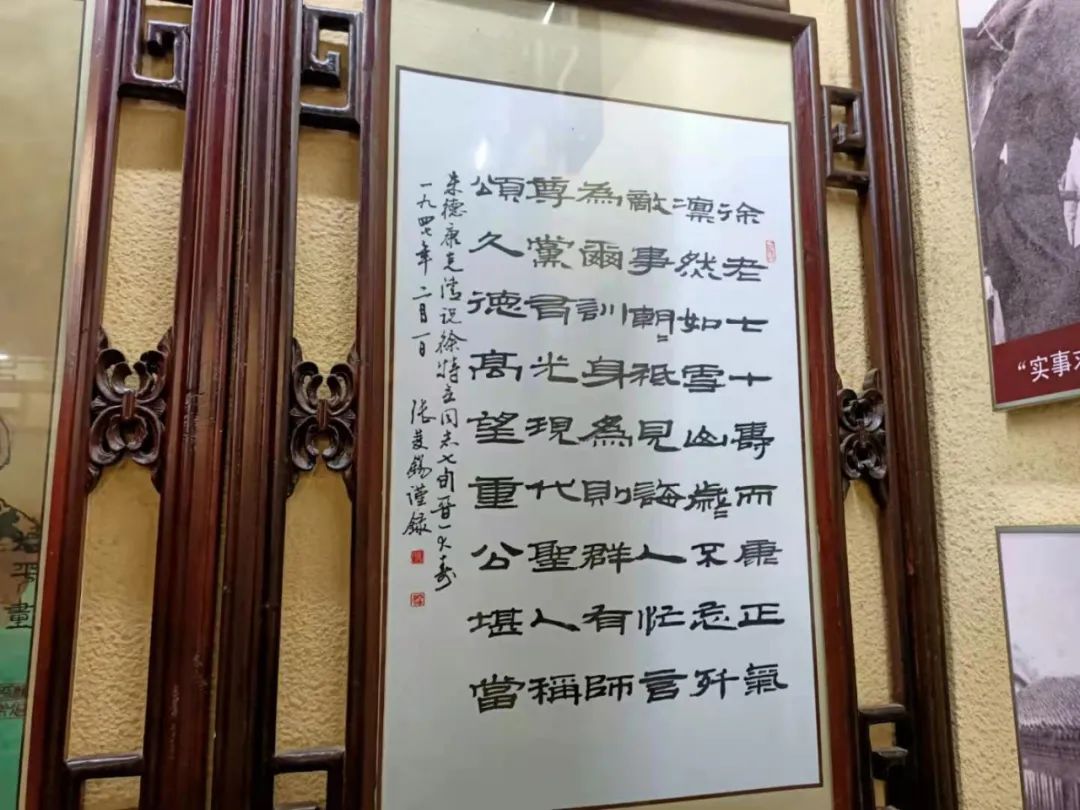 徐老七十壽而康正氣
凜然如雪山歲〻不忘歼
敵事朝〻祇見誨人忙言
為爾訓身為則群有師
尊黨有光現代聖人稱
頌久德高望重公堪當
朱德康克清祝徐特立同志七旬晋一大寿
一九四七年二月一日 張錫謹録
“实事